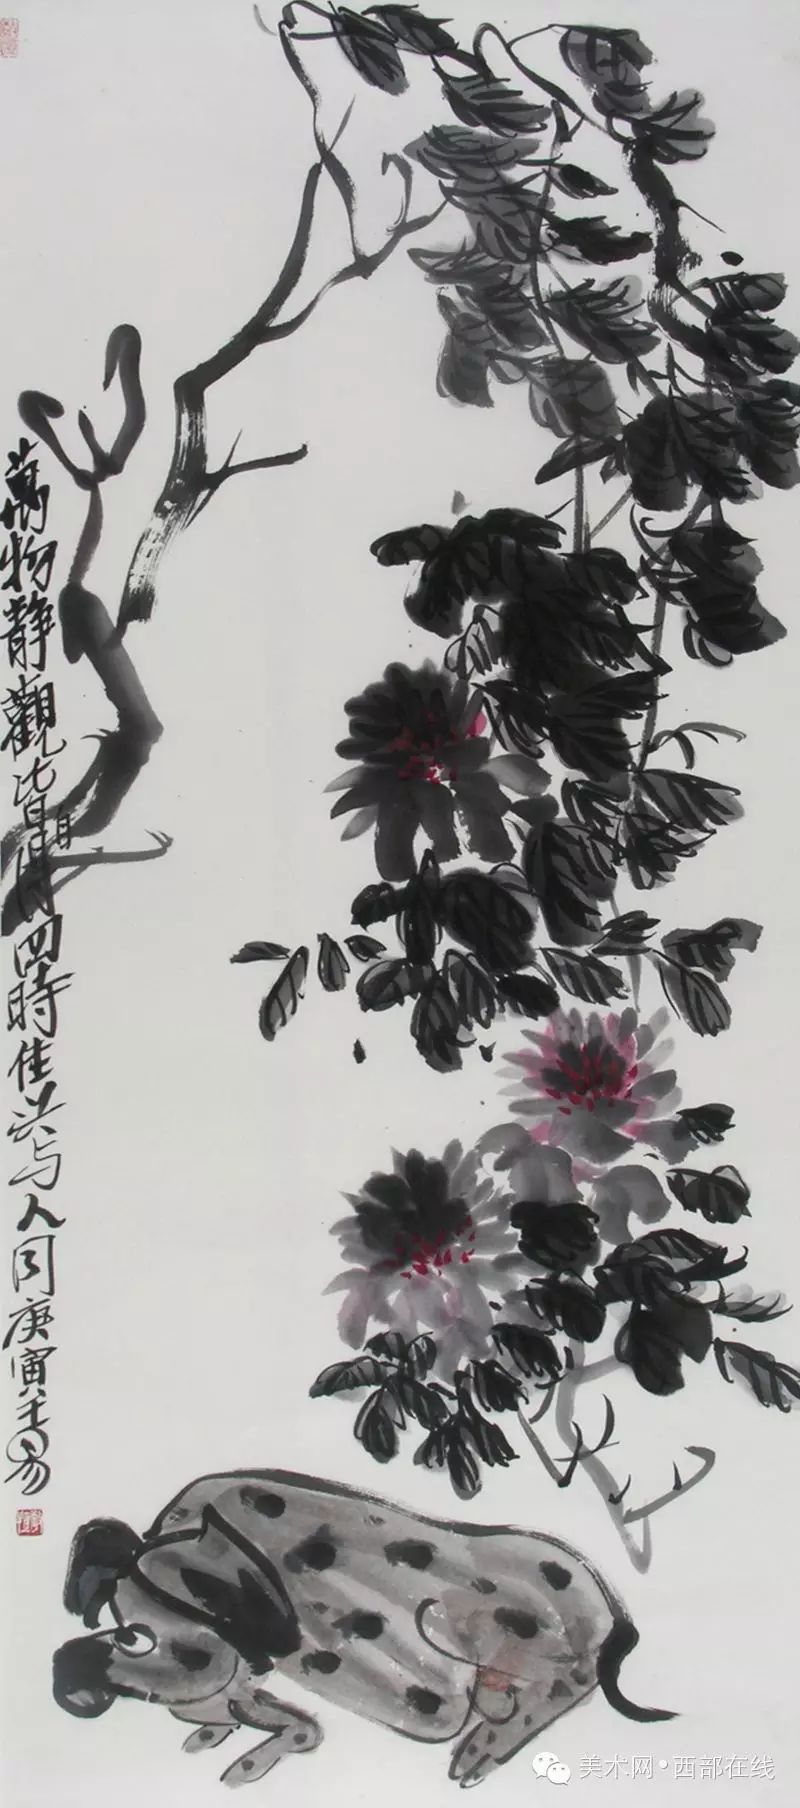 萬物静觀皆自得四時佳兴与人同庚寅王易
美术网·西部在线